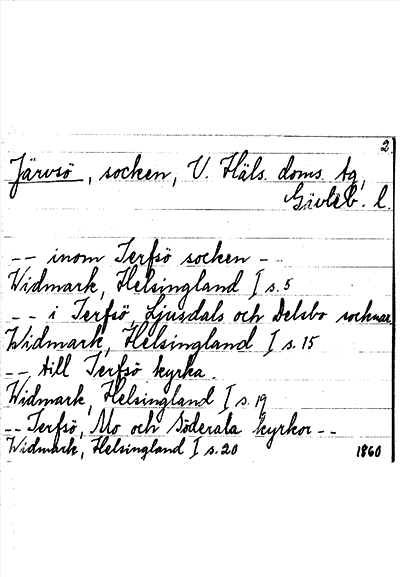 2
Järvsö, socken, V. Häls. doms. tg,
Gävleb. l.
-- inom Jerfsö socken -
Widmark, Helsingland I s. 5
-- i Jerfsö, Ljusdals och Delsbo socknar.
Widmark, Helsingland I s. 15
--, till Jerfsö kyrka.
Widmark, Helsingland I s. 19
-- Jerfsö, Mo och Söderala kyrkor --
Widmark, Helsingland I s. 20 1860